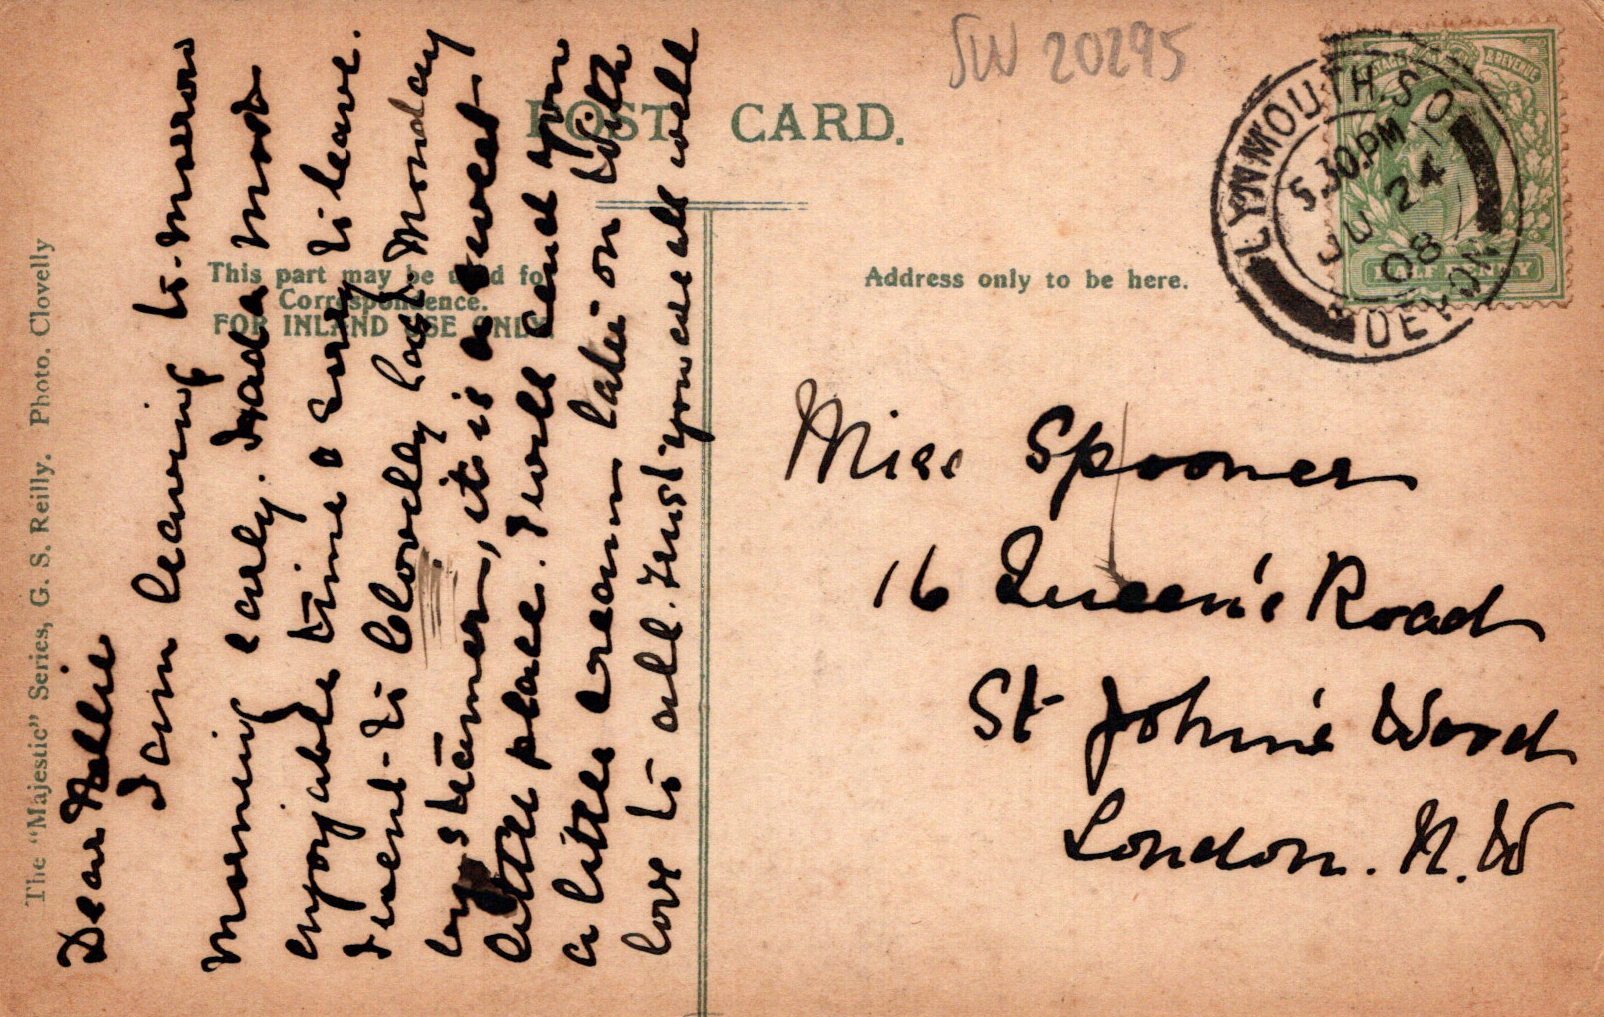 SW 20295
POST CARD.
The "Majestic" Series, G. S. Reilly. Photo. Clovelly
This part may be used for
Correspondence.
FOR INLAND USE ONLY
Address only to be here.
LYNMOUTH. S.O.
5.30.PM
JU 24
08
DEVON
POSTAGE & REVENUE
HALF PENNY
Dear Nellie
I am leaving to-morrow
morning early. I had a most
enjoyable time & sorry to leave.
I went to Clovelly last Monday
by steamer, it is a sweet
little place. I will send you
a little cream later on With
love to all. Trust you are all well
Miss Spooner
16 Queen's Road
St John's Wood
London. N.W